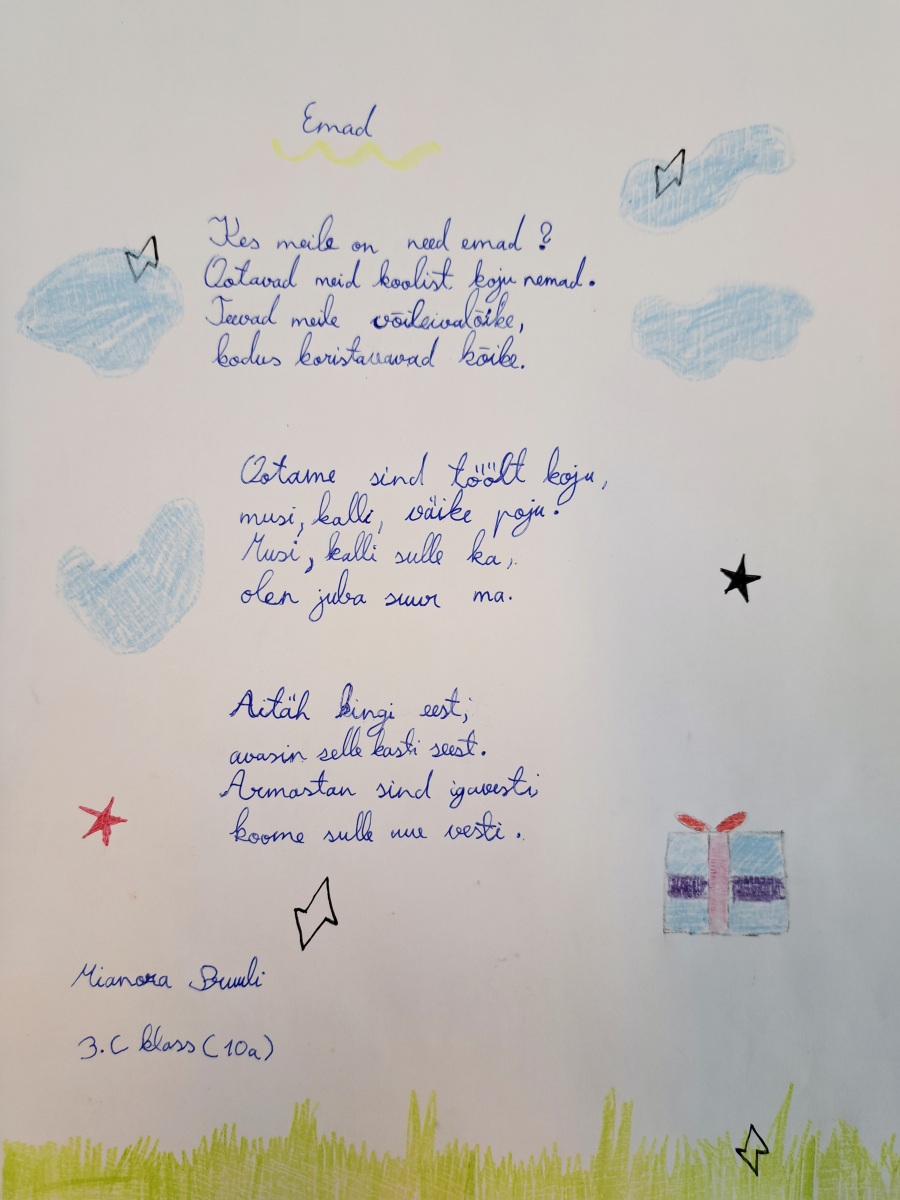 Emad
Kes meile on need emad ?
Ootavad meid koolist koju nemad.
Teevad meile võileivalõike,
kodus koristavavad kõike.
Ootame sind töölt koju,
musi, kalli, väike poju.
Musi, kalli sulle ka,
olen juba suur ma.
Aitäh kingi eest,
avasin selle kasti seest.
Armastan sind igavesti
koome sulle uue vesti.
Mianora
3.C klass (10a)